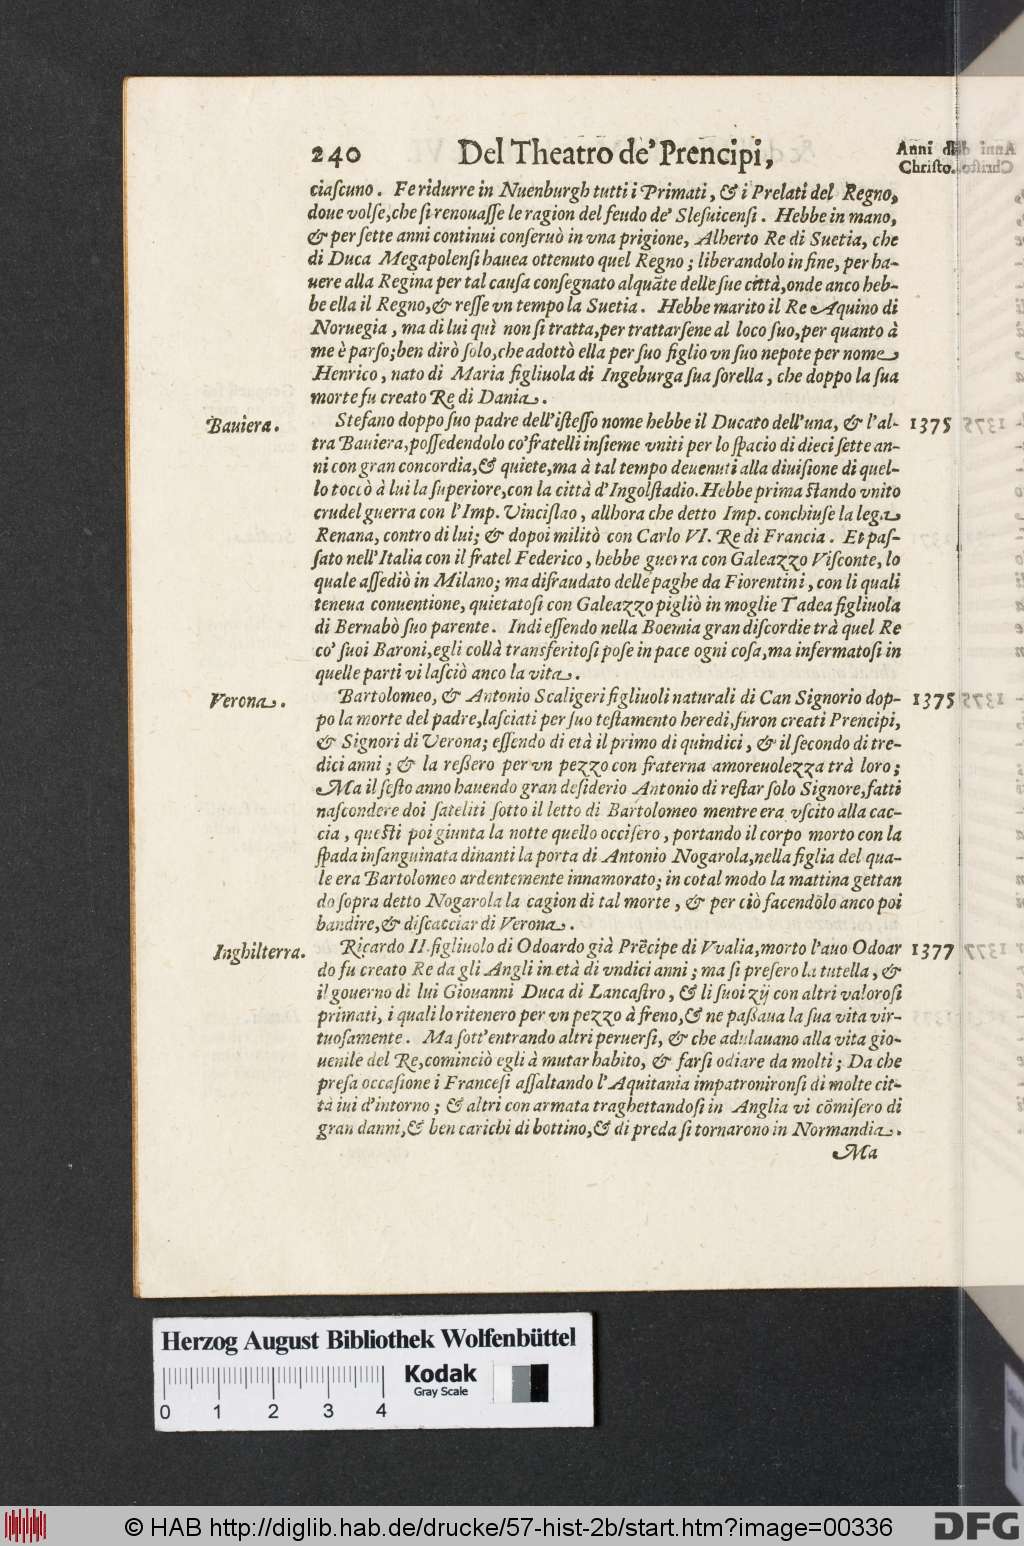 240 Del Theatro de' Prencipi, Anni di
Christo.
ciaſcuno. Fe ridurre in Nuenburgh tutti i Primati, & i Prelati del Regno,
doue volſe, che ſi renouaſſe le ragion del feudo de' Sleſuicenſi. Hebbe in mano,
& per ſette anni continui conſeruò in vna prigione, Alberto Re di Suetia, che
di Duca Megapolenſi hauea ottenuto quel Regno; liberandolo in fine, per ha-
uere alla Regina per tal cauſa conſegnato alquāte delle ſue città, onde anco heb-
be ella il Regno, & reſſe vn tempo la Suetia. Hebbe marito il Re Aquino di
Noruegia, ma di lui quì non ſi tratta, per trattarſene al loco ſuo, per quanto à
me è parſo; ben dirò ſolo, che adottò ella per ſuo figlio vn ſuo nepote per nome
Henrico, nato di Maria figliuola di Ingeburga ſua ſorella, che doppo la ſua
morte fu creato Re di Dania.
Bauiera. Stefano doppo ſuo padre dell'iſteſſo nome hebbe il Ducato dell'una, & l'al- 1375
tra Bauiera, poſſedendolo co' fratelli inſieme vniti per lo ſpacio di dieci ſette an-
ni con gran concordia, & quiete, ma à tal tempo deuenuti alla diuiſione di quel-
lo toccò à lui la ſuperiore, con la città d'Ingolſtadio. Hebbe prima ſtando vnito
crudel guerra con l'Imp. Vinciſlao, allhora che detto Imp. conchiuſe la lega
Renana, contro di lui; & dopoi militò con Carlo VI. Re di Francia. Et paſ-
ſato nell'Italia con il fratel Federico, hebbe guerra con Galeazzo Viſconte, lo
quale aſſediò in Milano; ma disfraudato delle paghe da Fiorentini, con li quali
teneua conuentione, quietatoſi con Galeazzo pigliò in moglie Tadea figliuola
di Bernabò ſuo parente. Indi eſſendo nella Boemia gran diſcordie trà quel Re
co' ſuoi Baroni, egli collà transferitoſi poſe in pace ogni coſa, ma infermatoſi in
quelle parti vi laſciò anco la vita.
Verona. Bartolomeo, & Antonio Scaligeri figliuoli naturali di Can Signorio dop- 1375
po la morte del padre, laſciati per ſuo teſtamento heredi, furon creati Prencipi,
& Signori di Verona; eſſendo di età il primo di quindici, & il ſecondo di tre-
dici anni; & la reßero per vn pezzo con fraterna amoreuolezza trà loro;
Ma il ſeſto anno hauendo gran deſiderio Antonio di reſtar ſolo Signore, fatti
naſcondere doi ſateliti ſotto il letto di Bartolomeo mentre era vſcito alla cac-
cia, queſti poi giunta la notte quello occiſero, portando il corpo morto con la
ſpada inſanguinata dinanti la porta di Antonio Nogarola, nella figlia del qua-
le era Bartolomeo ardentemente innamorato; in cotal modo la mattina gettan
do ſopra detto Nogarola la cagion di tal morte, & per ciò facendōlo anco poi
bandire, & diſcacciar di Verona.
Inghilterra. Ricardo II. figliuolo di Odoardo già Prēcipe di Vvalia, morto l'auo Odoar 1377
do fu creato Re da gli Angli in età di vndici anni; ma ſi preſero la tutella, &
il gouerno di lui Giouanni Duca di Lancaſtro, & li ſuoi zij con altri valoroſi
primati, i quali lo ritenero per vn pezzo à freno, & ne paßaua la ſua vita vir-
tuoſamente. Ma ſott'entrando altri peruerſi, & che adulauano alla vita gio-
uenile del Re, cominciò egli à mutar habito, & farſi odiare da molti; Da che
preſa occaſione i Franceſi aſſaltando l'Aquitania impatronironſi di molte cit-
tà iui d'intorno; & altri con armata traghettandoſi in Anglia vi cōmiſero di
gran danni, & ben carichi di bottino, & di preda ſi tornarono in Normandia.
Ma
Herzog August Bibliothek Wolfenbüttel
Kodak
Gray Scale
0 1 2 3 4
© HAB http://diglib.hab.de/drucke/57-hist-2b/start.htm?image=00336 DFG